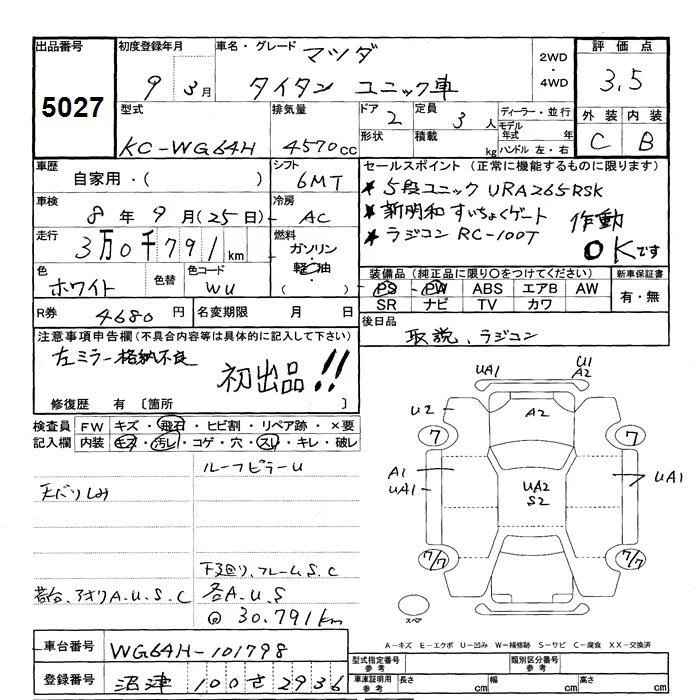 出品番号
5027
初度登録年月
9年 3月
車名・グレード マツダ
タイタン ユニック車
2WD
・
4WD
評価点
3.5
外装 内装
C B
型式
KC-WG64H
排気量
4570cc
ドア 2
形状
定員 3人
積載 kg
ディーラー・並行
モデル年式 年
ハンドル 左・右
車歴
自家用・( )
シフト
6MT
車検
8年9月(25日)
冷房
AC
走行
3万0千791km
燃料
ガソリン
・
軽油
( )
色
ホワイト
色替
色コード
WU
R券 4680円
名変期限 月 日
セールスポイント (正常に機能するものに限ります)
★ 5段ユニック URA265RSK
★ 新明和 すいちょくゲート
★ ラジコン RC-100T
作動
OKです
装備品 (純正品に限り○をつけてください)
PS PW ABS エアB AW
SR ナビ TV カワ
新車保証書
有・無
後日品
取説、ラジコン
注意事項申告欄(不具合内容等は具体的に記入して下さい)
左ミラー格納不良
初出品!!
修復歴 有 〔箇所 〕
検査員
記入欄
FW キズ・飛石・ヒビ割・リペア跡・×要
内装 キズ・汚レ・コゲ・穴・スレ・キレ・破レ
ルーフピラーU
天バリしみ
下廻り、フレームS.C
荷台、アオリA.U.S.C
各A.U.S
@ 30.791km
UA1
U1
A2
U2
A2
7
7
A1
UA1
UA2
S2
UA1
7/7
7/7
スペア
A-キズ E-エクボ U-凹み W-補修跡 S-サビ C-腐食 XX-交換済
車台番号
WG64H-101798
登録番号
沼津 100さ2936
型式指定番号
参考
類別区分番号
参考
車庫証明用
参考
長さ cm
幅 cm
高さ cm